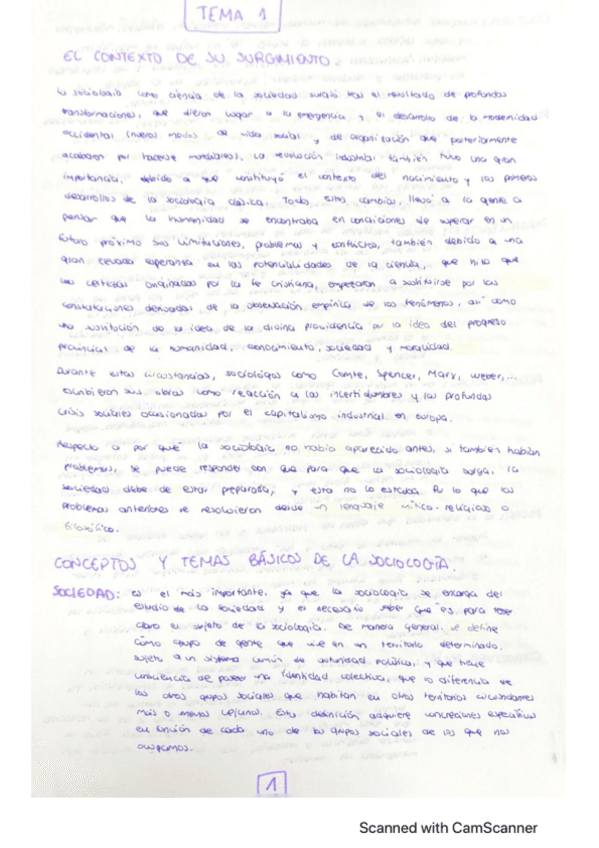 TEMA 1
EL CONTEXTO DE SU SURGIMIENTO
La sociología como ciencia de la sociedad surgió tras el resultado de profundas
transformaciones, que dieron lugar a la emergencia y el desarrollo de la modernidad
occidental (nuevos modos de vida social y de organización que posteriormente
acabaron por hacerse mundiales). La revolución industrial también tuvo una gran
importancia, debido a que constituyó el contexto del nacimiento y los primeros
desarrollos de la sociología clásica. Todos estos cambios, llevó a la gente a
pensar que la humanidad se encontraba en condiciones de superar en un
futuro próximo sus limitaciones, problemas y conflictos, también debido a una
gran elevada esperanza en las potencialidades de la ciencia, que hizo que
las certezas originadas por la fe cristiana, empezaron a sustituirse por las
constataciones derivadas de la observación empírica de los fenómenos, así como
una sustitución de la idea de la divina providencia por la idea del progreso
de la humanidad, conocimiento, sociedad y moralidad.
Durante estas circunstancias, sociólogos como Comte, Spencer, Marx, Weber,...
escribieron sus obras como reacción a las incertidumbres y las profundas
crisis sociales ocasionadas por el capitalismo industrial en Europa.
Respecto a por qué la sociología no había aparecido antes, si también habían
problemas, se puede responder con que para que la sociología surga, la
sociedad debe de estar preparada, y esta no lo estaba. Por lo que los
problemas anteriores se resolvieron desde un lenguaje mítico-religioso o
filosófico.
CONCEPTOS Y TEMAS BÁSICOS DE LA SOCIOLOGÍA.
SOCIEDAD: es el más importante, ya que la sociología se encarga del
estudio de la sociedad y es necesario saber que es para tener
claro el sujeto de la sociología. De manera general, se define
cómo grupo de gente que vive en un territorio determinado,
sujeto a un sistema común de autoridad política, y que tiene
consciencia de poseer una identidad colectiva, que lo diferencia de
los otros grupos sociales que habitan en otros territorios circundantes
más o menos lejanos. Esta definición adquiere concreciones específicas
en función de cada uno de los grupos sociales de los que nos
ocupemos.
1
Scanned with CamScanner